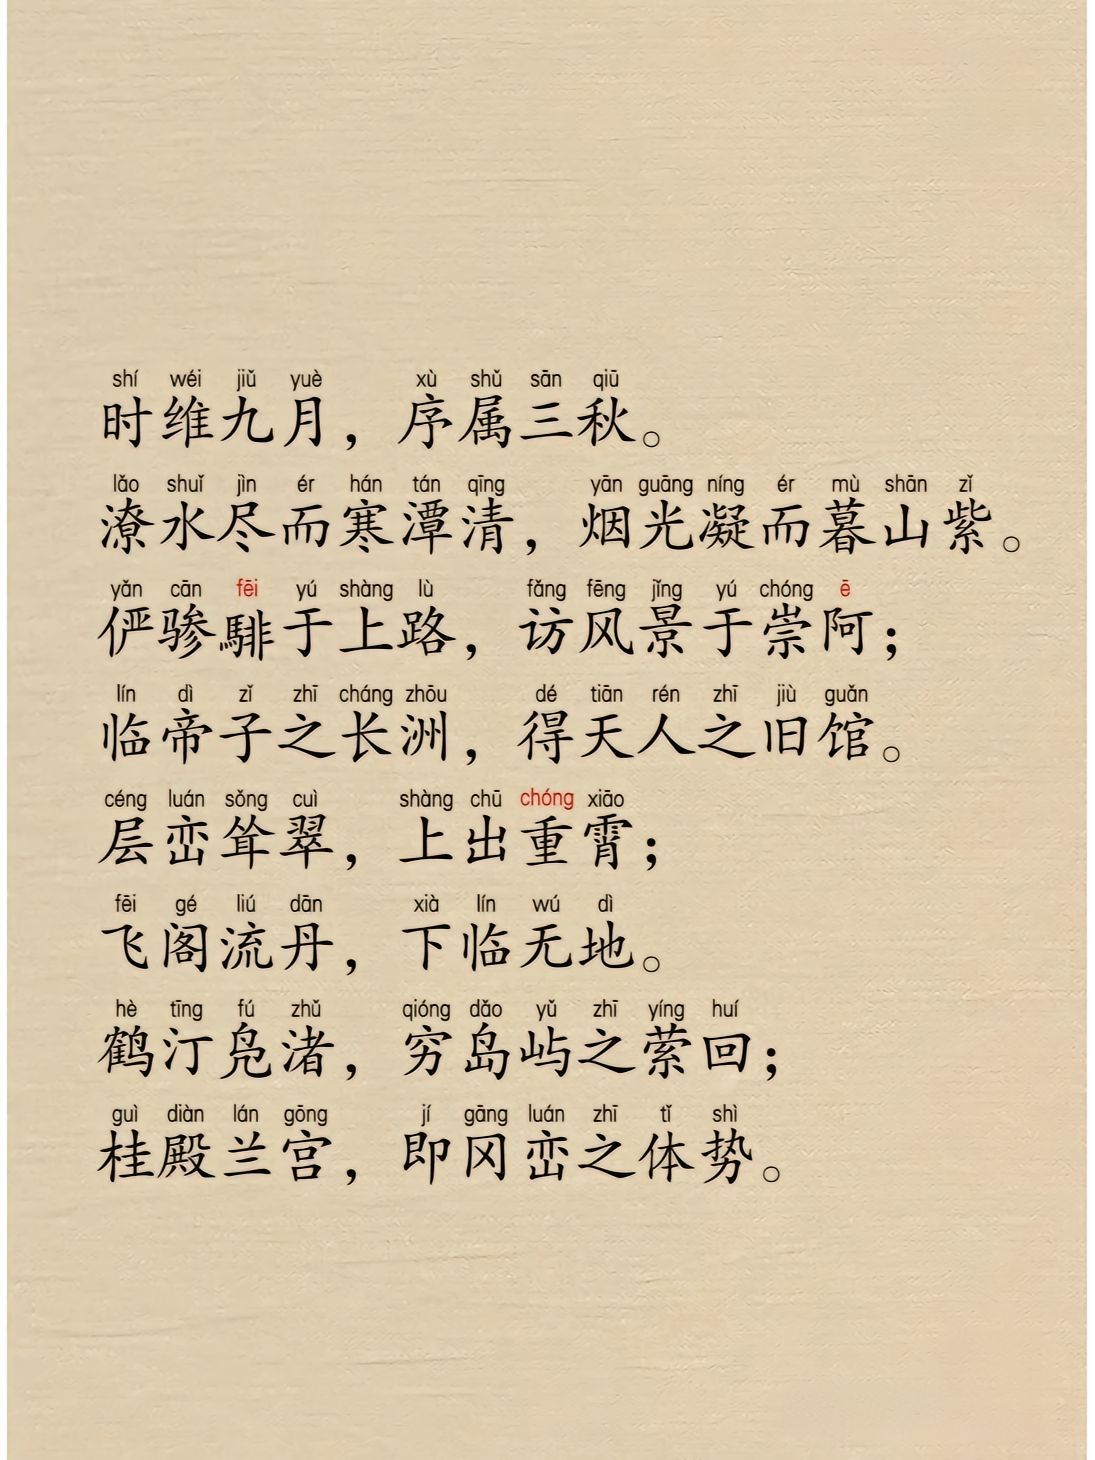 shí wéi jiǔ yuè xù shǔ sān qiū
时维九月，序属三秋。
lǎo shuǐ jìn ér hán tán qīng yān guāng níng ér mù shān zǐ
潦水尽而寒潭清，烟光凝而暮山紫。
yǎn cān fēi yú shàng lù fǎng fēng jǐng yú chóng ē
俨骖騑于上路，访风景于崇阿；
lín dì zǐ zhī cháng zhōu dé tiān rén zhī jiù guǎn
临帝子之长洲，得天人之旧馆。
céng luán sǒng cuì shàng chū chóng xiāo
层峦耸翠，上出重霄；
fēi gé liú dān xià lín wú dì
飞阁流丹，下临无地。
hè tīng fú zhǔ qióng dǎo yǔ zhī yíng huí
鹤汀凫渚，穷岛屿之萦回；
guì diàn lán gōng jí gāng luán zhī tǐ shì
桂殿兰宫，即冈峦之体势。